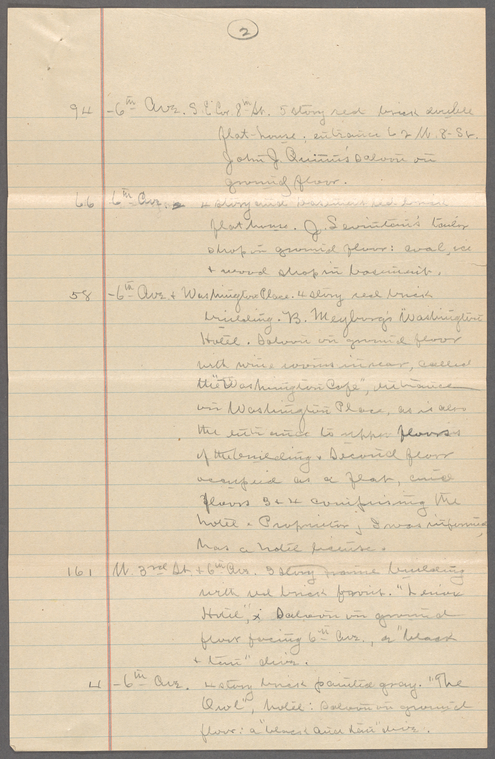 2
94 - 6th Ave. S.E. Cor 8th St. 5 story red brick double
flat-house, entrance 62 W. 8- St.
John J. Quinn's saloon on
ground floor.
66 6th Ave. - 4 story and basement red brick
flat house. J. tailor
shop on ground floor: coal, ice
+ wood shop in basement.
58 - 6th Ave + Washington Place. 4 story red brick
building. B. Meyborg's Washington
Hotel. Saloon on ground floor
with wine rooms in rear, called
the "Washington Cafe", entrance
on Washington Place, as is also
the entrance to upper floors
of the building. Second floor
occupied as a flat, and
floors 3 + 4 comprising the
hotel. Proprietor, I was informed,
has a hotel license.
161 W. 3rd St. + 6th Ave. 3 story frame building
with red brick front. "Lenox
Hotel", Saloon on ground
floor facing 6th Ave., a "black
+ tan" dive.
4 - 6th Ave. 4 story brick painted gray. "The
Owl", hotel: Saloon on ground
floor: a "black and tan" dive.